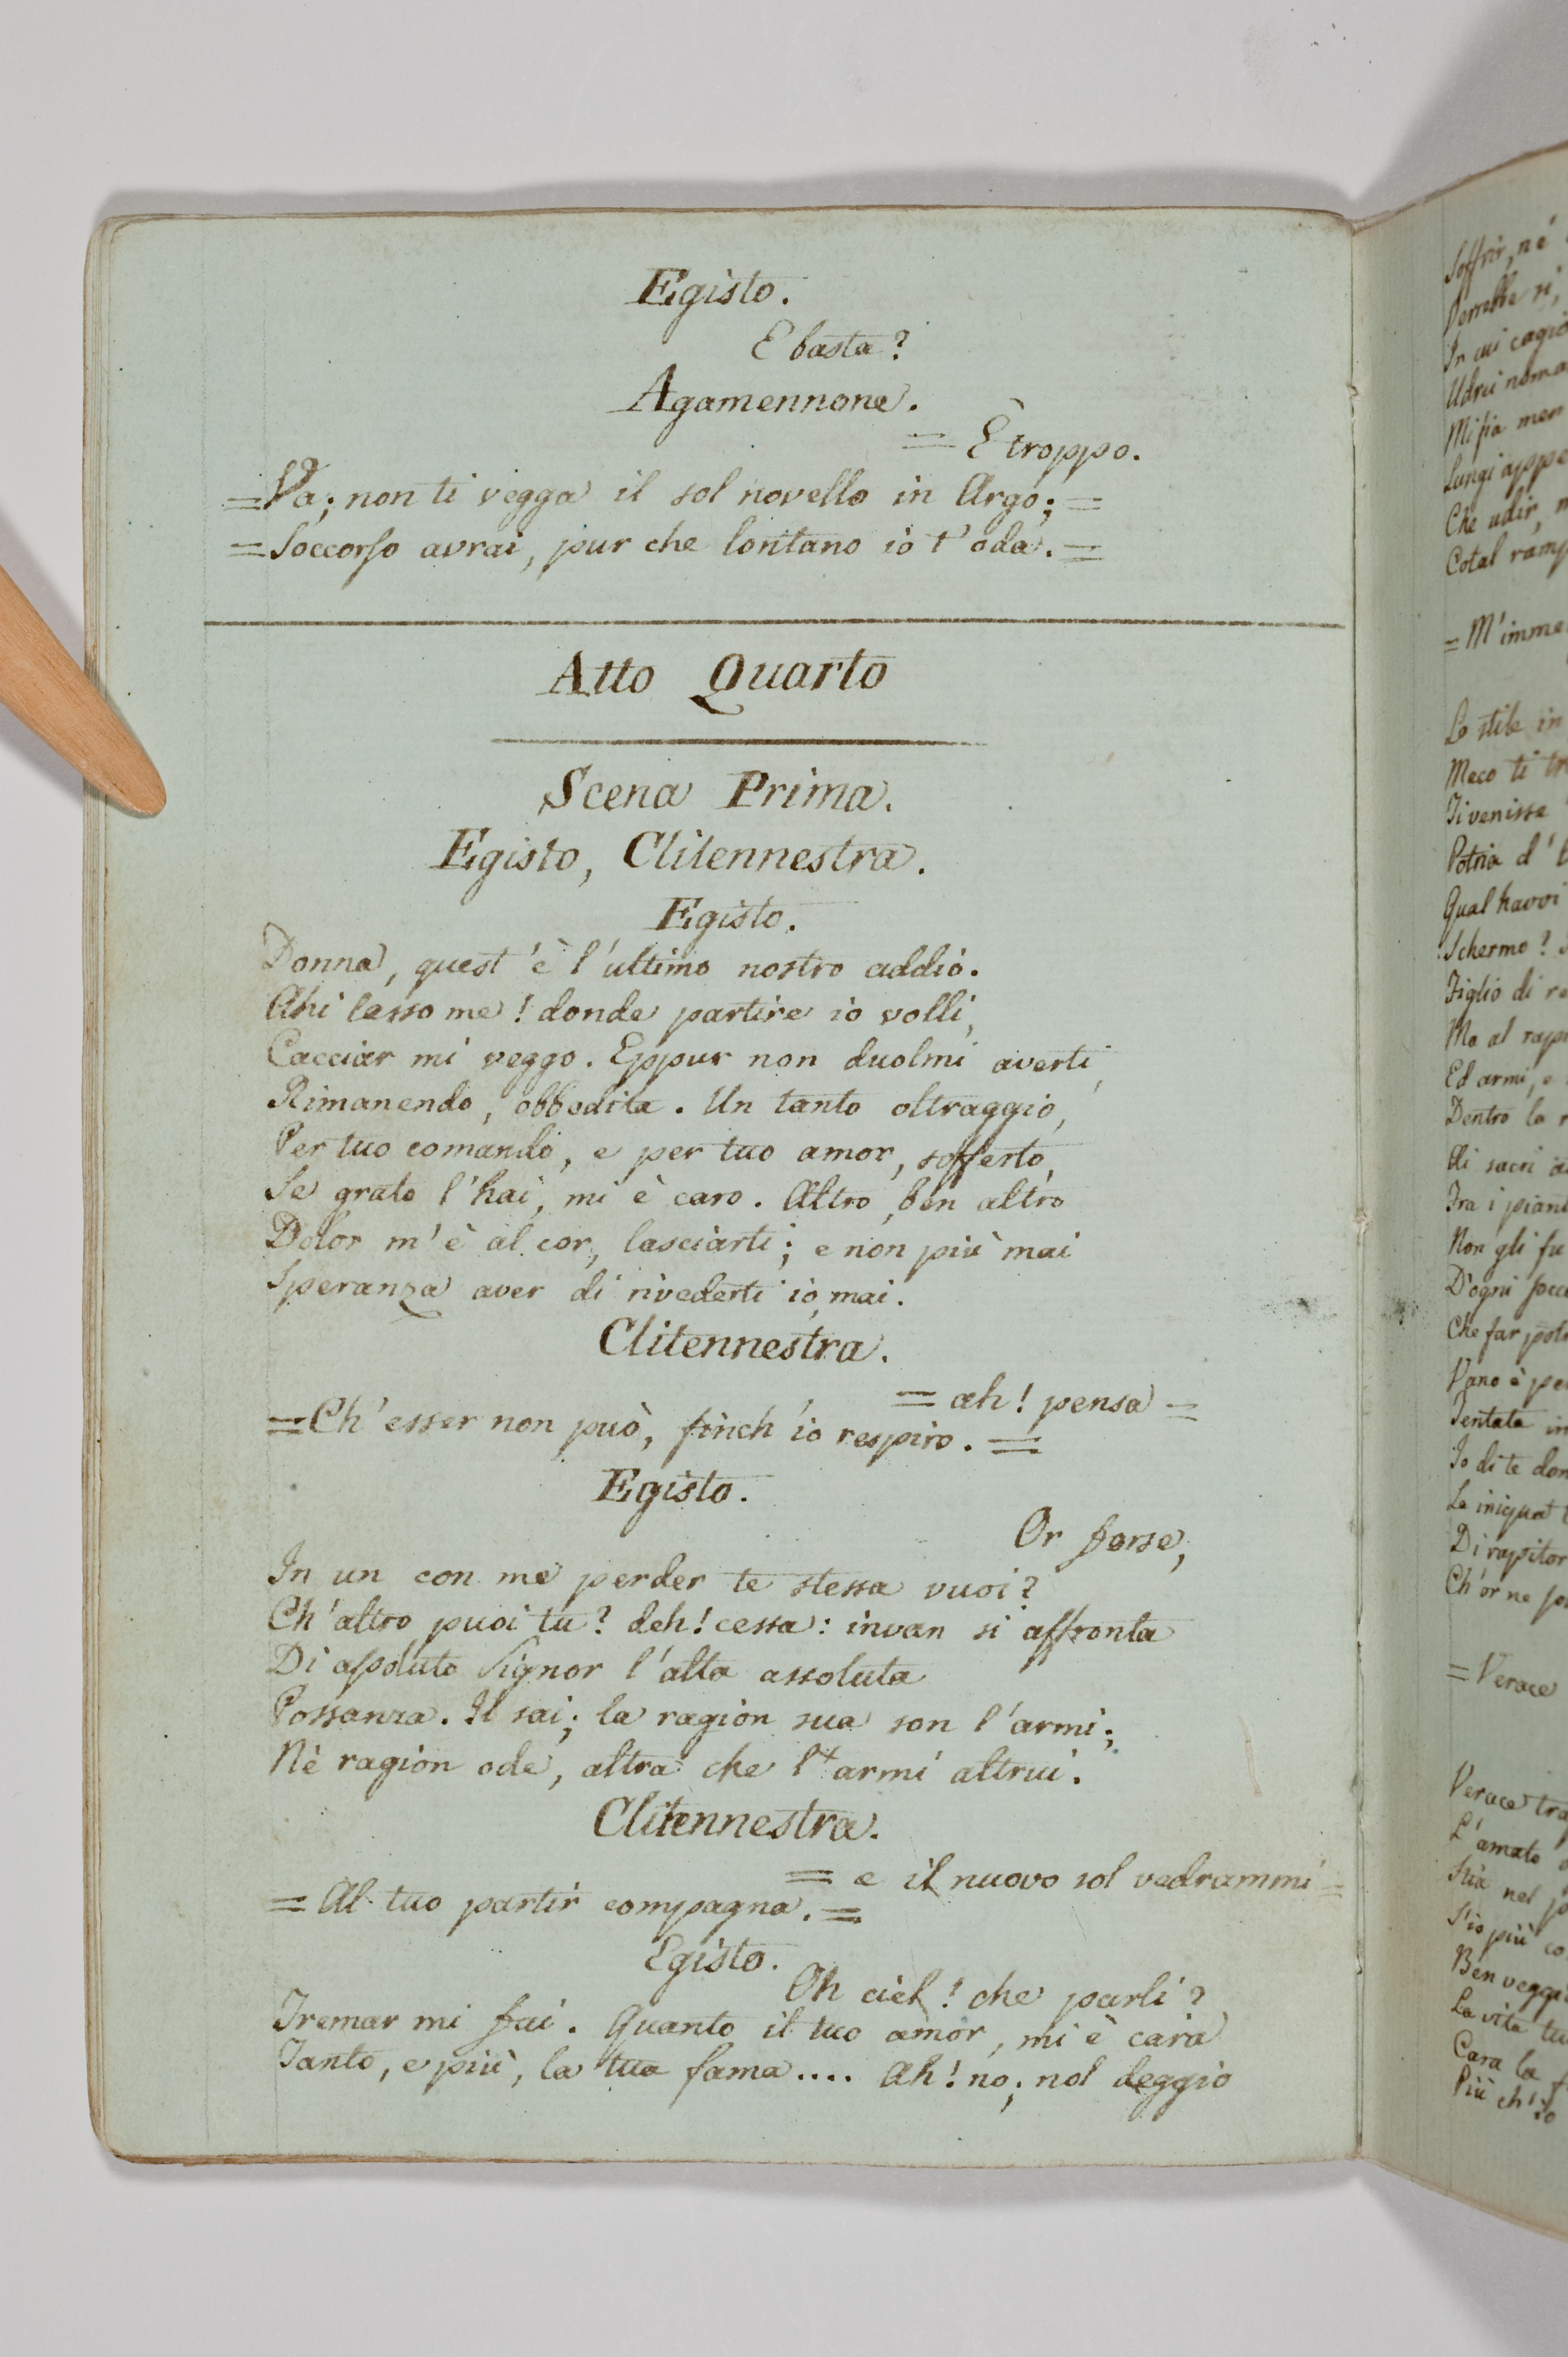 Egisto.
E basta?
Agamennone.
= È troppo.
= Va; non ti vegga il sol novello in Argo; =
= Soccorso avrai, pur che lontano io t'oda. =
Atto Quarto
Scena Prima.
Egisto, Clitennestra.
Egisto.
Donna, quest'è l'ultimo nostro addio.
Ahi lasso me! donde partire io volli,
Cacciar mi veggo. Eppur non duolmi averti,
Rimanendo, obbedita. Un tanto oltraggio,
Per tuo comando, e per tuo amor, sofferto,
Se grato l'hai, mi è caro. Altro, ben altro
Dolor m'è al cor, lasciarti; e non più mai
Speranza aver di rivederti io, mai.
Clitennestra.
= ah! pensa =
= Ch'esser non può, finch'io respiro. =
Egisto.
Or forse,
In un con me perder te stessa vuoi?
Ch'altro puoi tu? deh! cessa: invan si affronta
Di assoluto Signor l'alta assoluta
Possanza. Il sai; la ragion sua son l'armi;
Nè ragion ode, altra che l'armi altrui.
Clitennestra.
= e il nuovo sol vedrammi =
= Al tuo partir compagna. =
Egisto.
Oh ciel! che parli?
Tremar mi fai. Quanto il tuo amor, mi è cara
Tanto, e più, la tua fama.... Ah! no; nol deggio
Soffrir, nè
Verrebbe
In cui
Udrei
Mi fia men
Lungi
Che udir,
Cotal
= M'imme
Lo stile in
Meco ti
Ti venisse
Patria d'
Qual havvi
Schermo?
Figlio di
Ma al
Ed armi, e
Dentro la
Di sacri
Tra i
Non gli fu
D'ogni
Che far
Vano è
Tentata
Io di te
Le
Di
Ch'or ne
= Verace
Verace
L'amato
Stia nel
S'io più
Ben
La vita
Cara la
Più ch'io